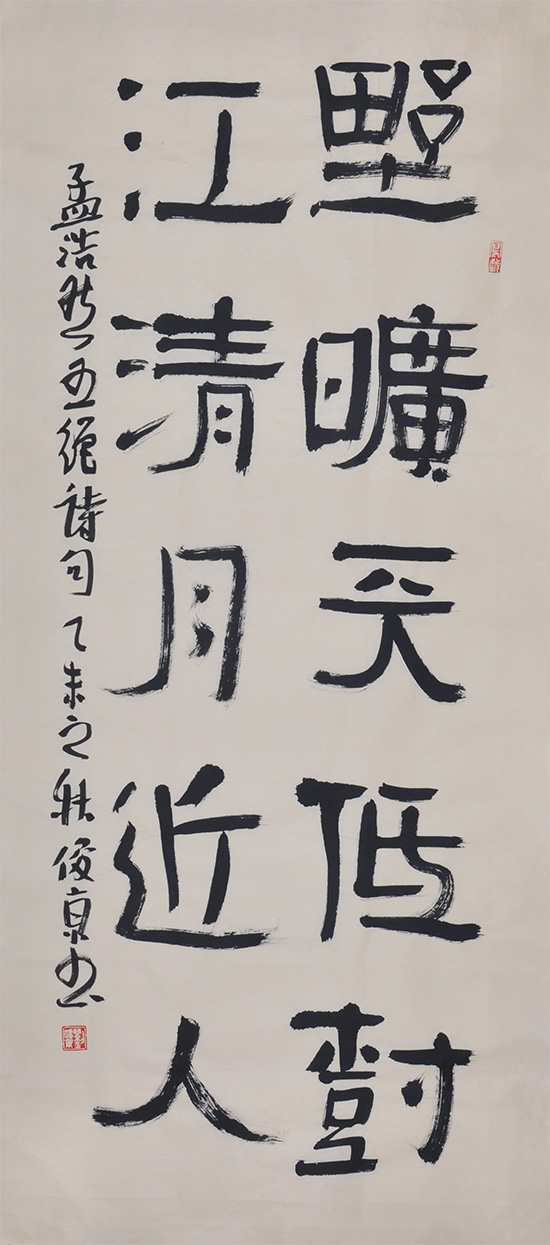 野曠天低尌
江清月近人
孟浩然五絕詩句乙未之秋俊京书